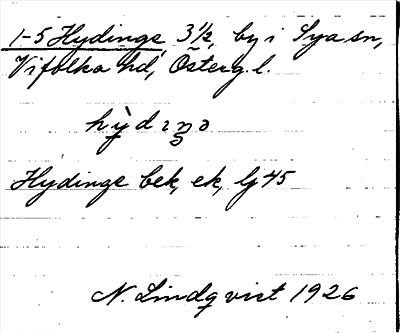 1-5 Hydinge, 3 1/2, by i Sya sn,
Vifolka hd, Österg. l.
Hydinge bek, ek, lj 45
N. Lindqvist 1926